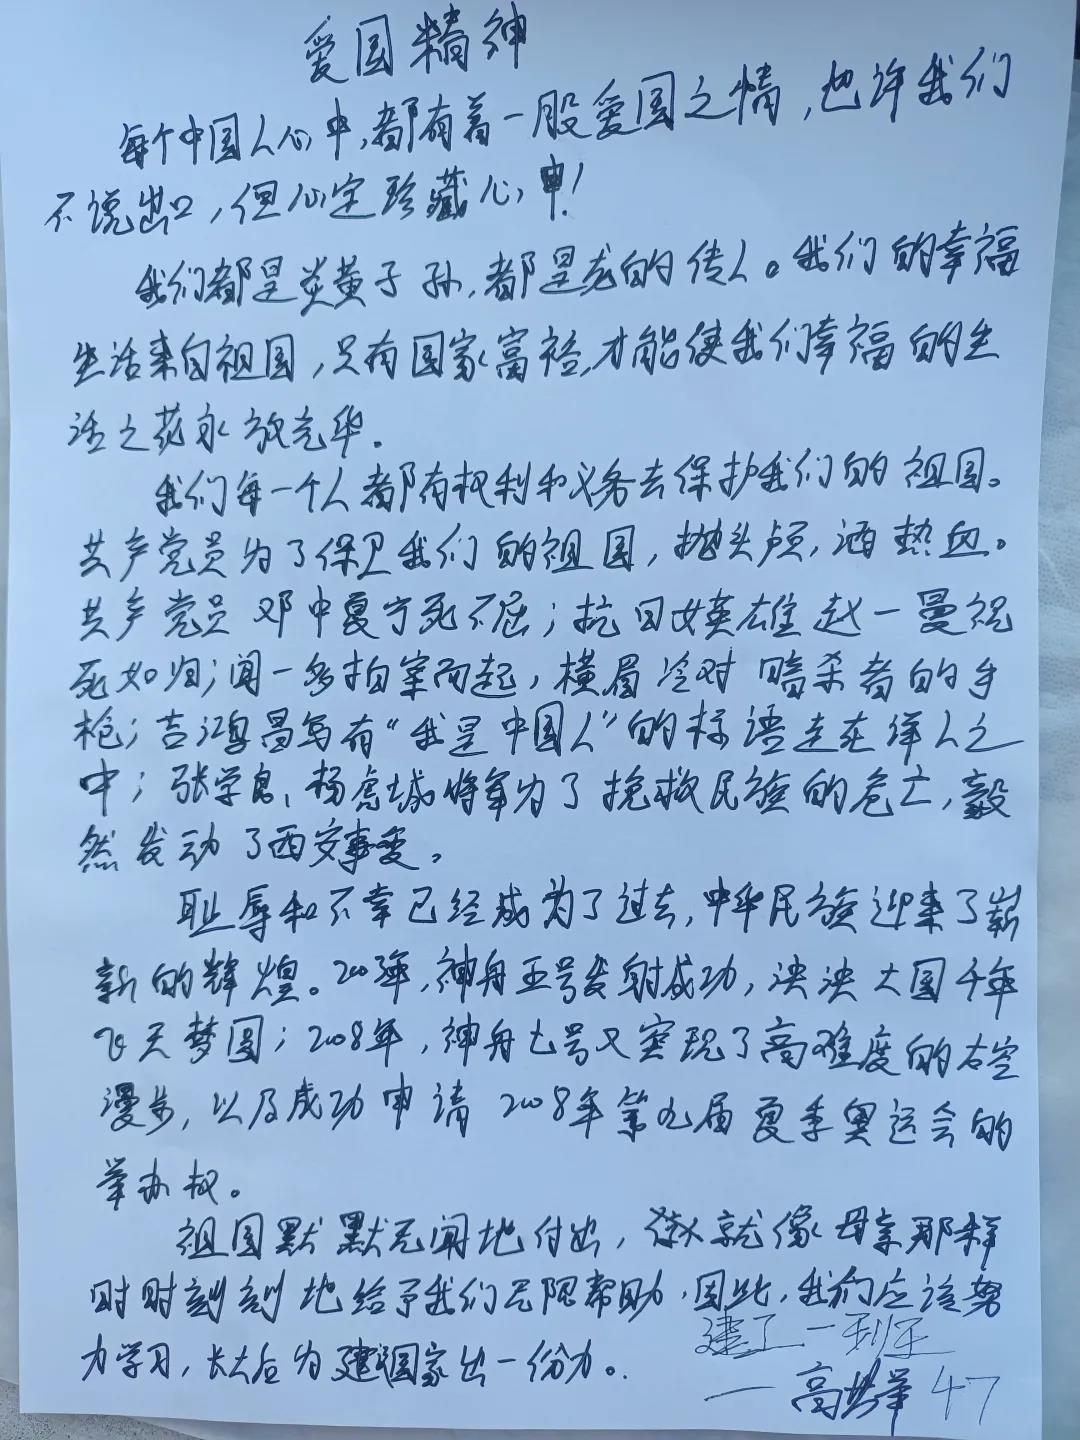 爱国精神
每个中国人心中,都有着一股爱国之情,也许我们
不说出口,但心定珍藏心中!
我们都是炎黄子孙,都是龙的传人。我们的幸福
生活来自祖国,只有国家富裕,才能使我们幸福的生
活之花永放光华.
我们每一个人都有权利和义务去保护我们的祖国。
共产党员为了保卫我们的祖国,抛头颅,洒热血。
共产党员邓中夏宁死不屈;抗日女英雄赵一曼视
死如归;闻一多拍案而起,横眉冷对暗杀者的手
枪;吉鸿昌写有“我是中国人”的标语走在洋人之
中;张学良、杨虎城将军为了挽救民族的危亡,毅
然发动了西安事变。
耻辱和不幸已经成为了过去,中华民族迎来了崭
新的辉煌。2003年,神舟五号发射成功,泱泱大国千年
飞天梦圆;2008年,神舟七号又实现了高难度的太空
漫步,以及成功申请2008年第九届夏季奥运会的
举办权。
祖国默默无闻地付出,就像母亲那样
时时刻刻地给予我们无限帮助.因此,我们应该努
力学习,长大后为建设国家出一份力。
建工一班
—高 47